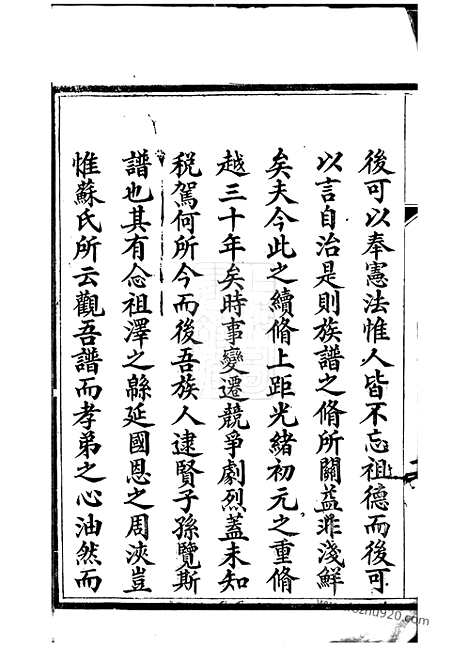 後可以奉憲法惟人皆不忘祖德而後可
以言自治是則族譜之脩所關益非淺鮮
矣夫今此之續脩上距光緒初元之重脩
越三十年矣時事變遷競爭劇烈蓋未知
税駕何所今而後吾族人逮賢子孫覽斯
譜也其有念祖澤之緜延國恩之周浹豈
惟蘇氏所云觀吾譜而孝弟之心油然而